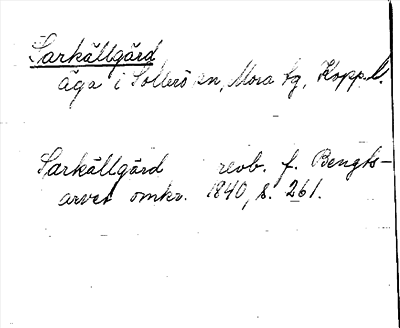 Sarkällgård
äga i Sollerö sn, Mora tg, Kopp. l.
Sarkällgård revb. f. Bengts-
arvet omkr. 1840, s. 261.